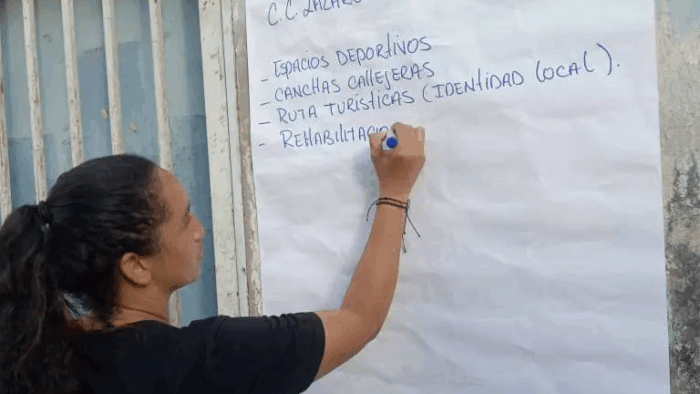 C.C. LAZARO
- ESPACIOS DEPORTIVOS
- CANCHAS CALLEJERAS
- RUTA TURISTICAS (IDENTIDAD LOCAL).
- REHABILITACIO